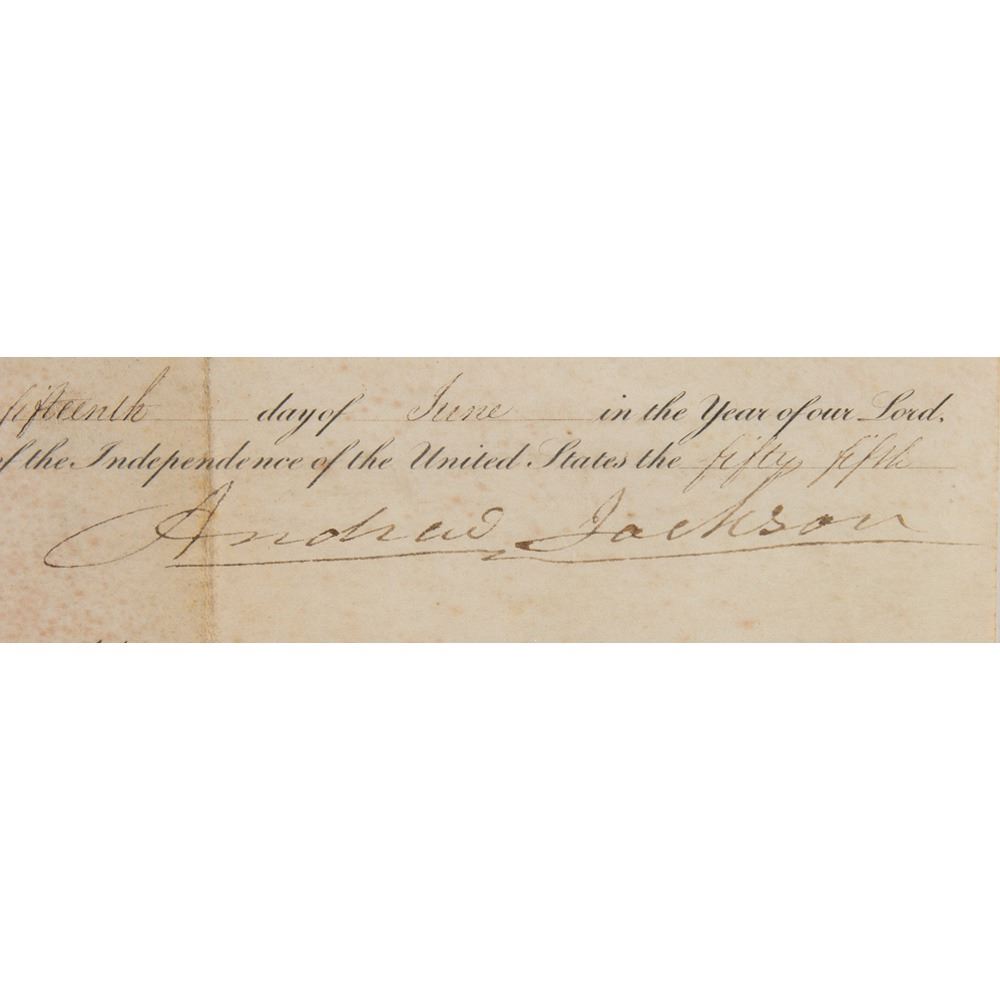 fifteenth day of June in the Year of our Lord,
of the Independence of the United States the fifty fifth
Andrew Jackson